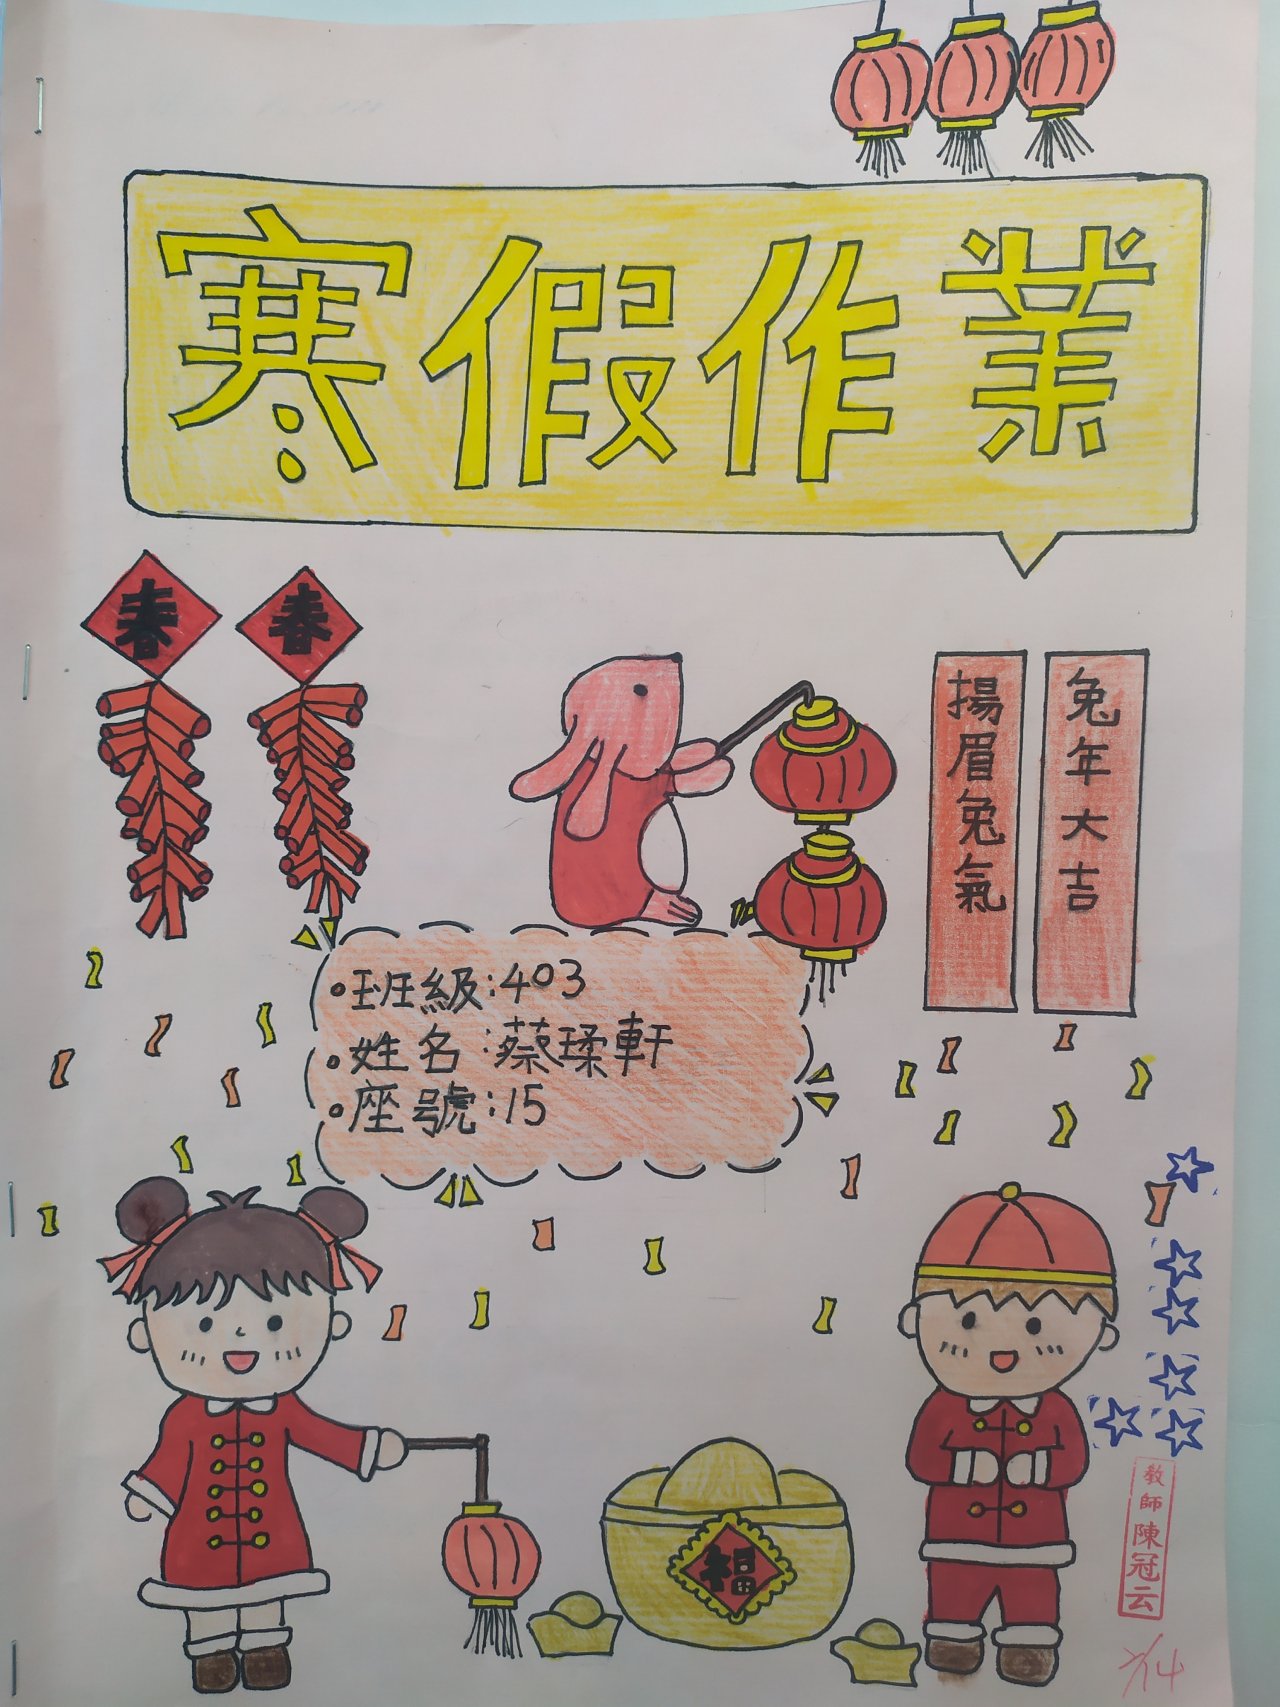 寒假作業
春
春
兔年大吉
揚眉兔氣
班級:403
姓名:蔡瑈軒
座號:15
福
教師陳冠云
2/14